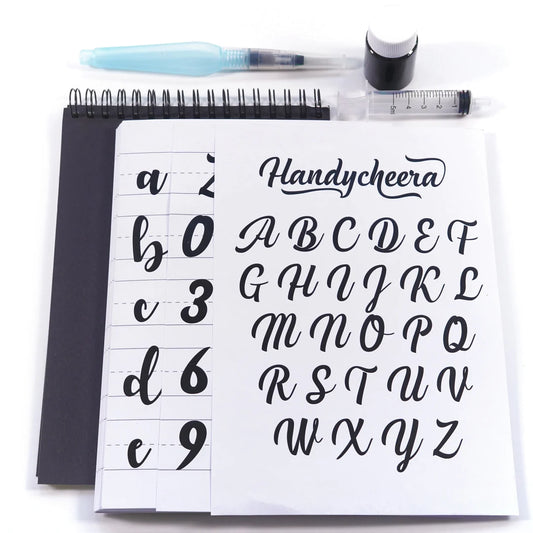 Handycheera
A B C D E F
G H I J K L
M N O P Q
R S T U V
W X Y Z
a
b
c
d
e
0
3
6
9
5ml 4 3 2 1